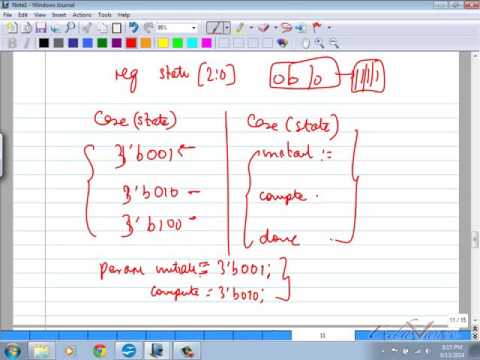 Note1 - Windows Journal
File Edit View Insert Actions Tools Help
reg state [2:0]
Case (state)
3'b001
3'b010
3'b100
Case (state)
initial :=
compte
done
param initial = 3'b001;
compute = 3'b010;
11 / 15
11
8:21 PM
9/13/2014